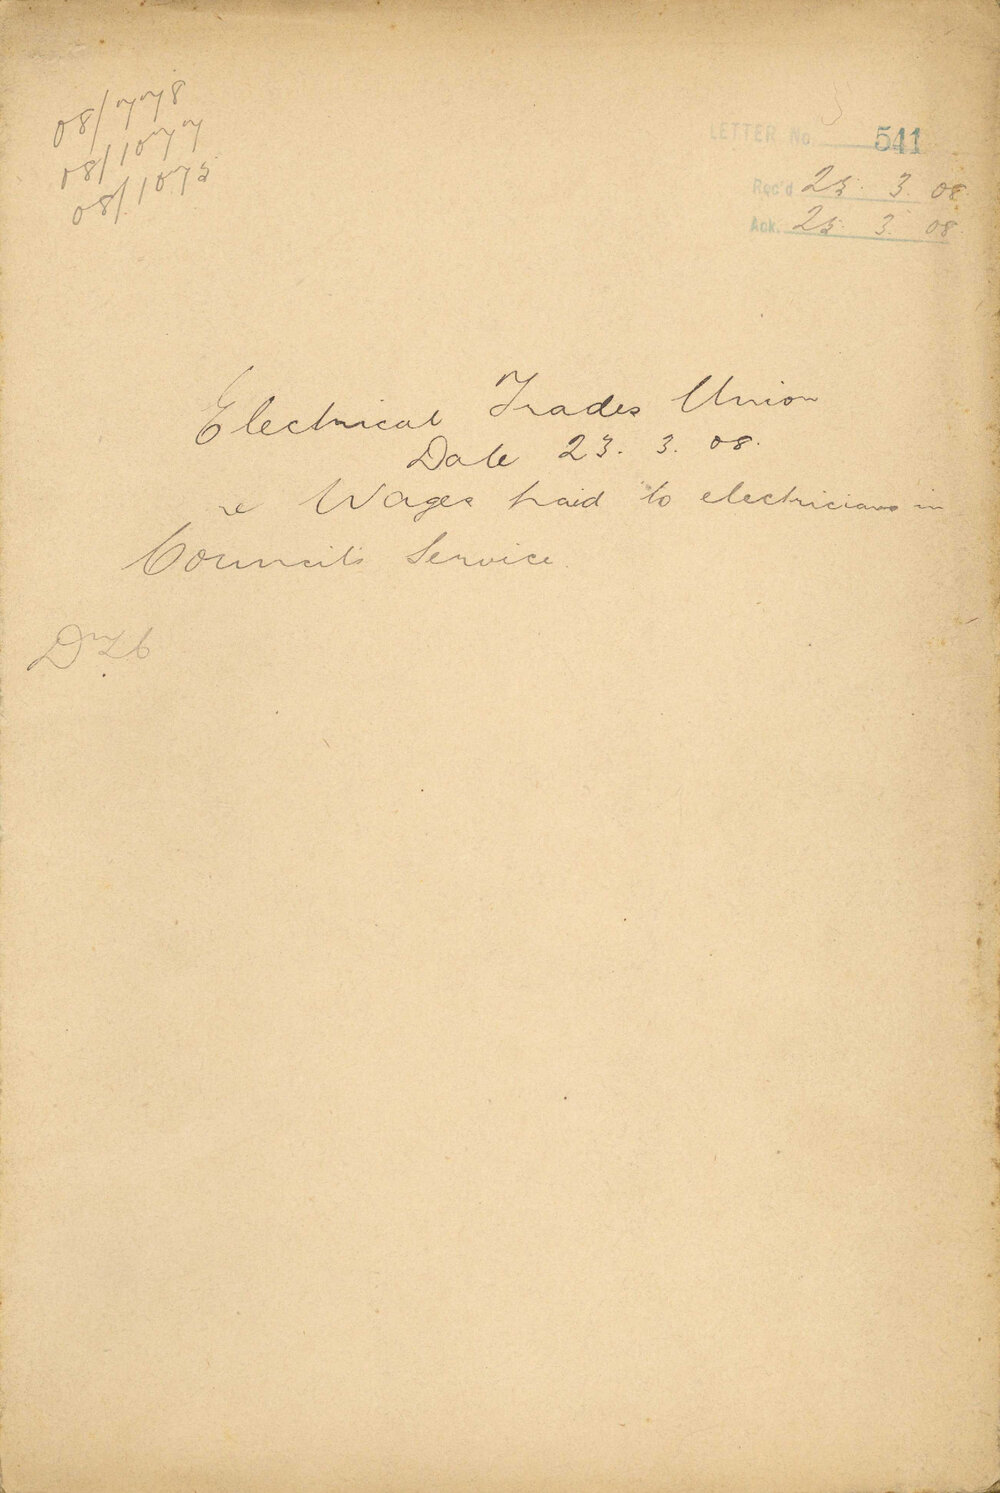 08/778
08/1077
08/1075
LETTER No. 541
Rec'd 25. 3. 08
Ack. 25. 3. 08.
Electrical Trades Union
Date 23. 3. 08.
re Wages paid to electricians in
Council's Service.